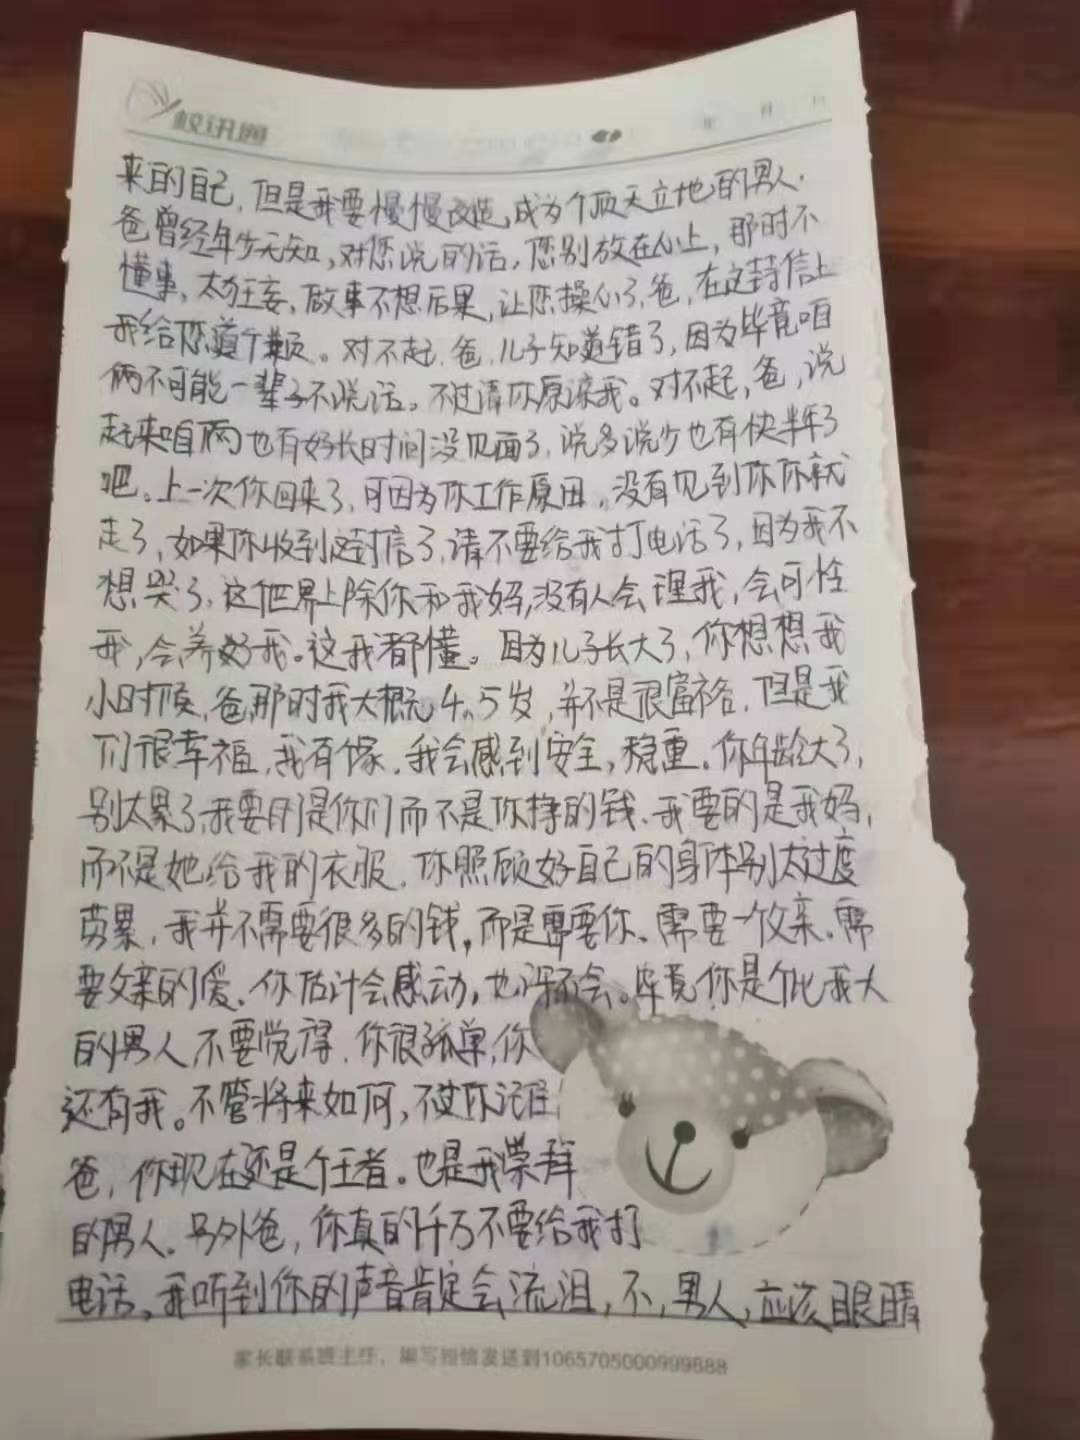 校讯通
年 月 日
来的自己，但是我要慢慢改造，成为个顶天立地的男人.
爸曾经年少无知，对您说的话，您别放在心上，那时不
懂事，太狂妄，做事不想后果，让您操心了，爸，在这封信上
我给您道个歉。对不起，爸，儿子知道错了，因为毕竟咱
俩不可能一辈子不说话，不过请你原谅我。对不起，爸，说
起来咱俩也有好长时间没见面了，说多说少也有快半年了
吧。上一次你回来了，可因为你工作原因，没有见到你你就
走了，如果你收到这封信了，请不要给我打电话了，因为我不
想哭了，这个世界上除你和我妈，没有人会理我，会可怜
我，会养好我。这我都懂。因为儿子长大了，你想想我
小时候，爸，那时我大概4、5岁，并不是很富裕，但是我
们很幸福，我有个家，我会感到安全，稳重。你年龄大了，
别太累了，我要的是你们而不是你挣的钱、我要的是我妈，
而不是她给我的衣服，你照顾好自己的身体别太过度
劳累，我并不需要很多的钱，而是需要你、需要一个父亲、需
要父亲的爱、你估计会感动，也许不会。毕竟你是个比我大
的男人，不要觉得，你很孤单，你
还有我。不管将来如何，不过你记住
爸，你现在还是个王者。也是我崇拜
的男人。另外爸，你真的千万不要给我打
电话，我听到你的声音肯定会流泪，不，男人，应该眼睛
家长联系班主任，编写短信发送到1065705000999888